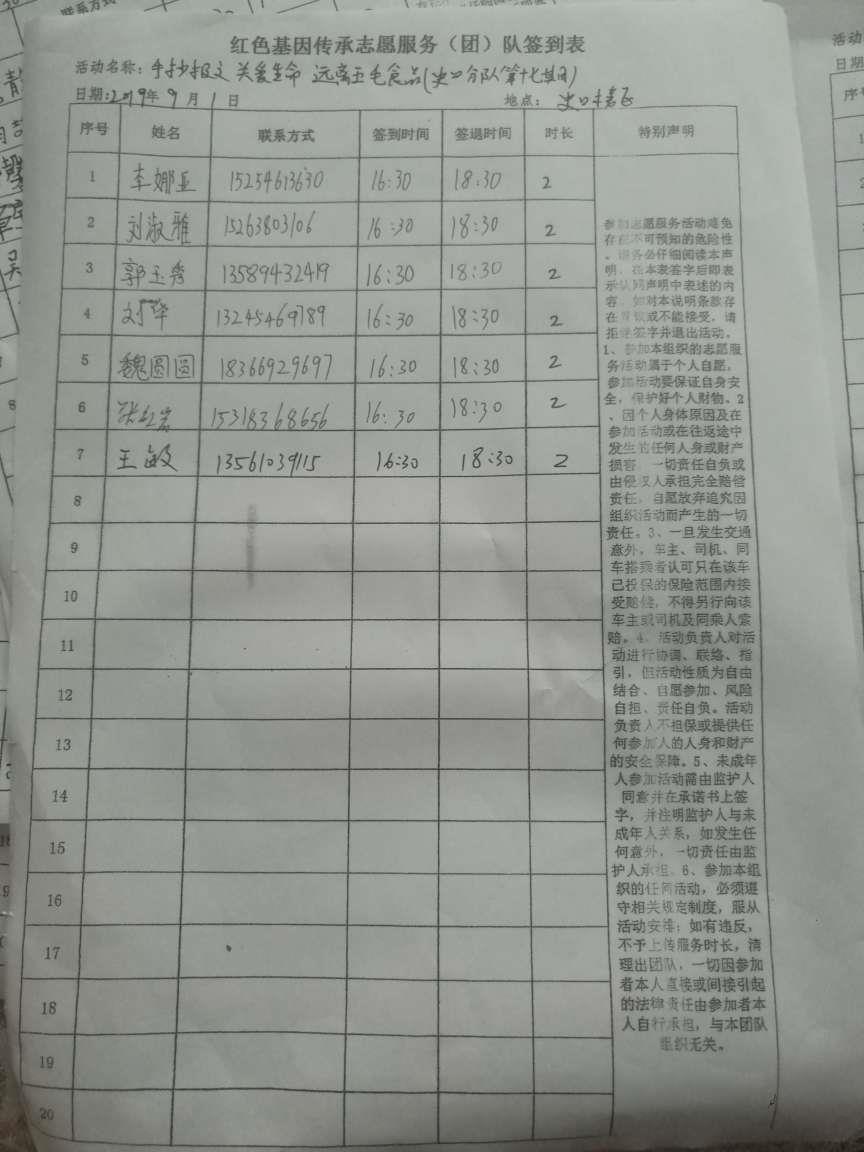 红色基因传承志愿服务（团）队签到表
活动名称：手抄报文 关爱生命 远离五毛食品(史口分队第十七期)
日期:2019年 9 月 1 日 地点： 史口
序号 姓名 联系方式 签到时间 签退时间 时长 特别声明
1 李娜亚 15254613630 16:30 18:30 2
2 刘淑雅 15263803106 16:30 18:30 2
3 郭玉秀 13589432419 16:30 18:30 2
4 刘华 13245469789 16:30 18:30 2
5 魏圆圆 18366929697 16:30 18:30 2
6 张红岩 15318368656 16:30 18:30 2
7 王敏 13561039115 16:30 18:30 2
8
9
10
11
12
13
14
15
16
17
18
19
20
参加志愿服务活动难免
存在不可预知的危险性
。请务必仔细阅读本声
明，在本表签字后即表
示认同声明中表述的内
容。如对本说明条款存
在异议或不能接受，请
拒绝签字并退出活动。
1、参加本组织的志愿服
务活动属于个人自愿，
参加活动要保证自身安
全，保护好个人财物。2
、因个人身体原因及在
参加活动或在往返途中
发生的任何人身或财产
损害，一切责任自负或
由侵权人承担完全赔偿
责任，自愿放弃追究因
组织活动而产生的一切
责任。3、一旦发生交通
意外，车主、司机、同
车搭乘者认可只在该车
已投保的保险范围内接
受赔偿，不得另行向该
车主或司机及同乘人索
赔。4、活动负责人对活
动进行协调、联络、指
引，但活动性质为自由
结合、自愿参加、风险
自担、责任自负。活动
负责人不担保或提供任
何参加人的人身和财产
的安全保障。5、未成年
人参加活动需由监护人
同意并在承诺书上签
字，并注明监护人与未
成年人关系，如发生任
何意外，一切责任由监
护人承担。6、参加本组
织的任何活动，必须遵
守相关规定制度，服从
活动安排；如有违反，
不予上传服务时长，清
理出团队，一切因参加
者本人直接或间接引起
的法律责任由参加者本
人自行承担，与本团队
组织无关。